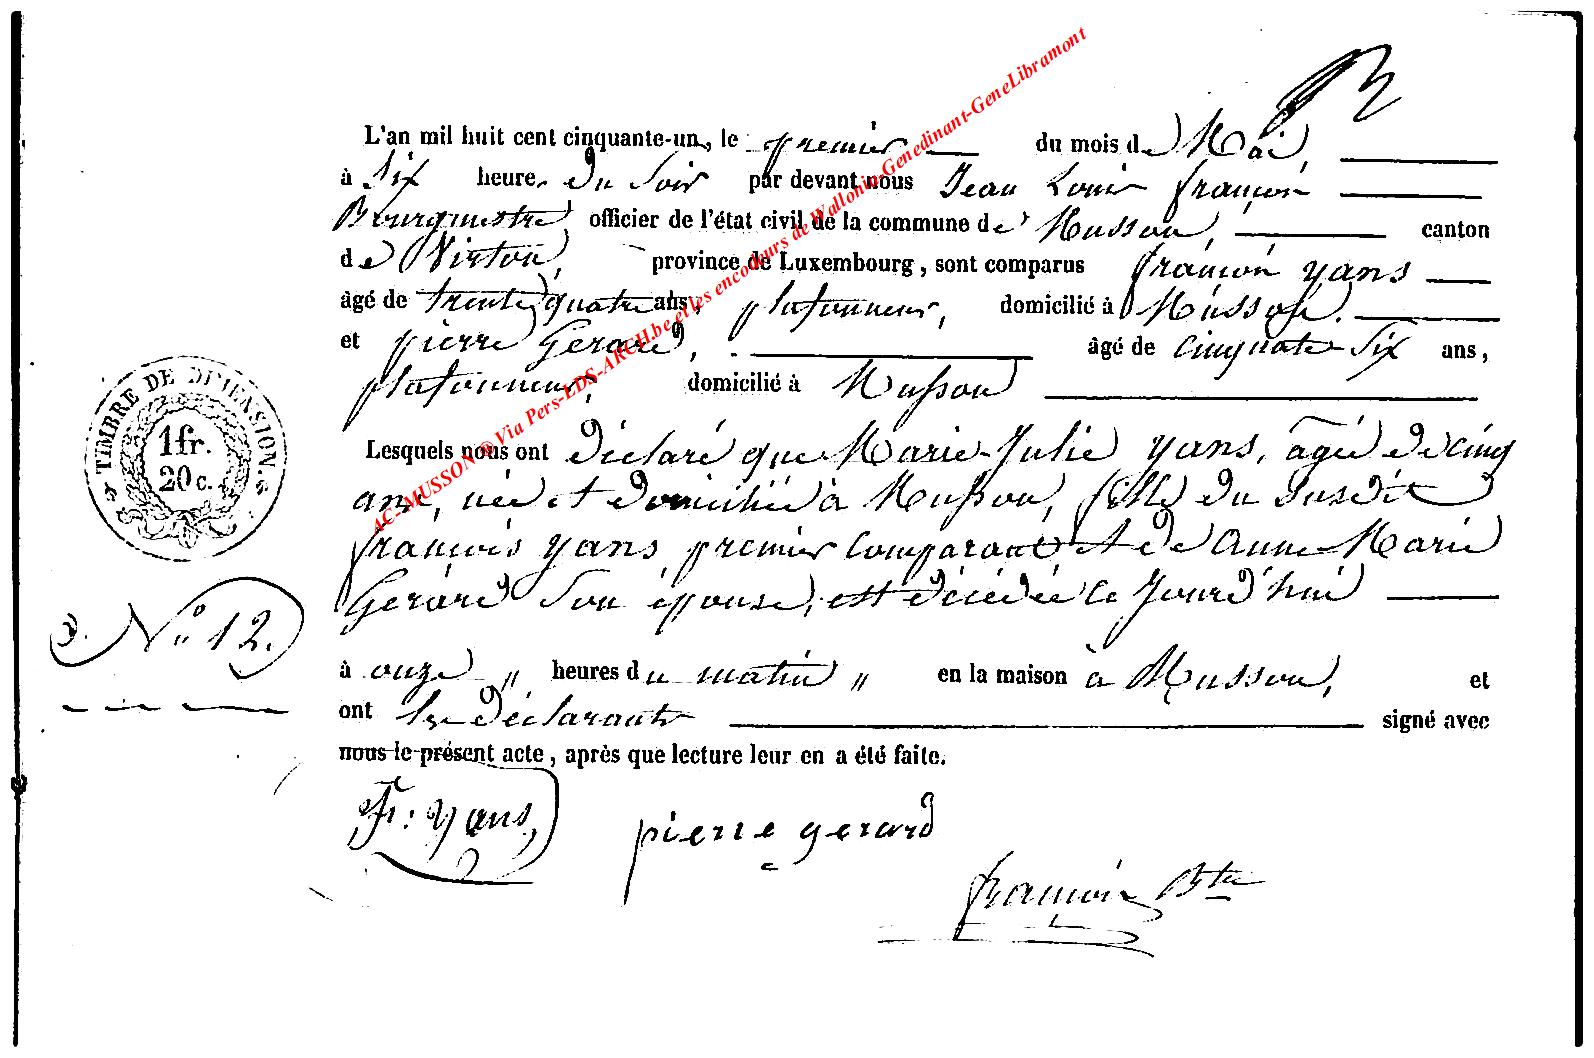 L'an mil huit cent cinquante-un, le premier du mois de Mai,
à Six heures du Soir par devant nous Jean Louis françois
Bourgmestre, officier de l'état civil de la commune de Musson, canton
de Virton, province de Luxembourg, sont comparus françois yans
âgé de trente quatre ans, plafonneur, domicilié à Musson.
et pierre Gerard, âgé de cinquante Six ans,
plafonneur, domicilié à Musson
Lesquels nous ont déclaré que Marie-Julie yans, agée de cinq
ans, née et domiciliée à Musson, fille du Susdit
françois yans, premier comparant et de Anne-Marie
Gerard Son épouse, est décédée ce Jourd'hui
à onze " heures du matin " en la maison à Musson, et
ont les déclarants signé avec
nous le présent acte, après que lecture leur en a été faite.
TIMBRE DE DIMENSION
1fr.
20c.
N° 12.
Fr: yans,
pierre gerard
françois Btre
AC-MUSSON @ Via Pers-EDS-ARCH.be et les encodeurs de Wallonin-Genedinant-GeneLibramont